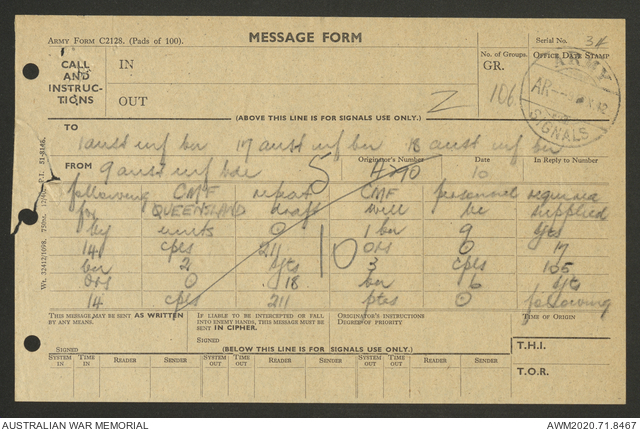 ARMY FORM C2128. (Pads of 100).
MESSAGE FORM
Serial No. 34
CALL AND INSTRUCTIONS
IN
OUT
No. of Groups.
GR. 106
OFFICE DATE STAMP
ARMY
SIGNALS
Z
(ABOVE THIS LINE IS FOR SIGNALS USE ONLY.)
TO
1 aust inf bn 17 aust inf bn 18 aust inf bn
FROM 9 aust inf bde
Originator's Number
Date
10
In Reply to Number
following CMF repeat CMF personnel required
for QUEENSLAND draft will be supplied
by units O 1 bn 9 sjts
14 cpls 211 ORs O 17
bn 2 sjts 3 cpls 105
ORs O 18 bn 6 sjt
14 cpls 211 ptes O following
THIS MESSAGE MAY BE SENT AS WRITTEN BY ANY MEANS.
IF LIABLE TO BE INTERCEPTED OR FALL INTO ENEMY HANDS, THIS MESSAGE MUST BE SENT IN CIPHER.
ORIGINATOR'S INSTRUCTIONS
DEGREE OF PRIORITY
TIME OF ORIGIN
SIGNED
SIGNED
(BELOW THIS LINE IS FOR SIGNALS USE ONLY.)
T.H.I.
SYSTEM IN TIME IN READER SENDER SYSTEM OUT TIME OUT READER SENDER SYSTEM OUT TIME OUT READER SENDER
T.O.R.
AUSTRALIAN WAR MEMORIAL
AWM2020.71.8467